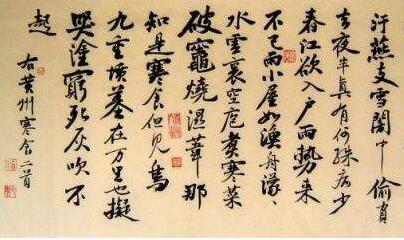 汙燕支雪闇中偷負
去夜半真有何殊病少
春江欲入戶雨勢來
不已雨小屋如漁舟濛〻
水雲裏空庖煮寒菜
破竈燒濕葦那
知是寒食但見烏
九重墳墓在万里也擬
哭塗窮死灰吹不
起
右黄州寒食二首